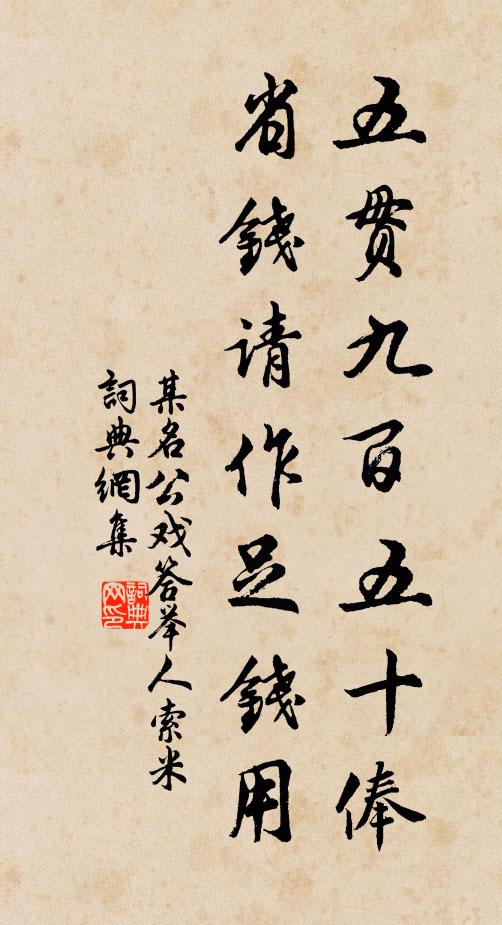 五贯九百五十俸
省錢请作足錢用
某名公戏答举人索米
詞典網集
詞典网印